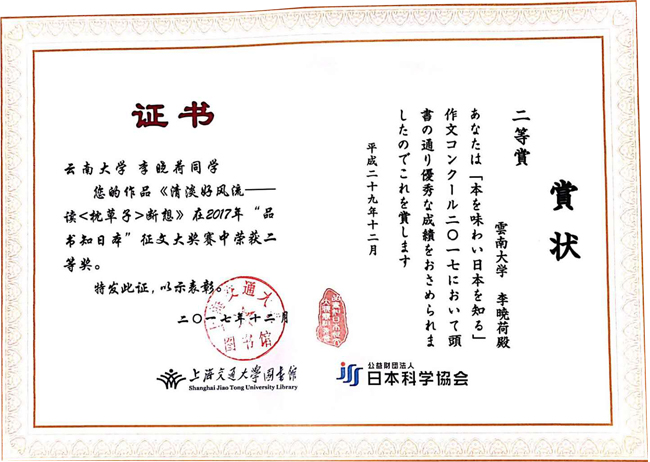 证书
云南大学 李晓荷同学
您的作品《清淡好风流——
读<枕草子>断想》在2017年“品
书知日本”征文大奖赛中荣获二
等奖。
特发此证,以示表彰。
二〇一七年十二月
上海交通大学图书馆
Shanghai Jiao Tong University Library
賞状
二等賞
雲南大学 李暁荷殿
あなたは「本を味わい日本を知る」
作文コンクール二〇一七において頭
書の通り優秀な成績をおさめられま
したのでこれを賞します
平成二十九年十二月
公益財団法人
JSS 日本科学協会